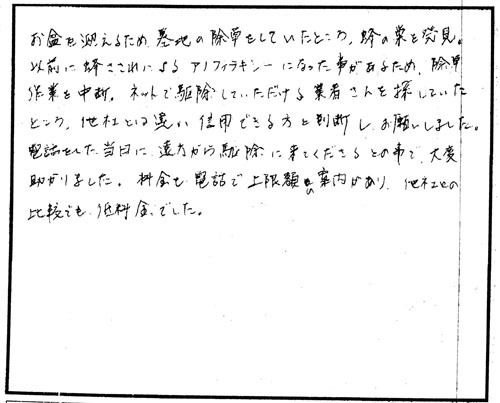 お盆を迎えるため、墓地の除草をしていたところ、蜂の巣を発見。
以前に蜂さされによるアナフィラキシーになった事があるため、除草
作業を中断。ネットで駆除していただける業者さんを探していた
ところ、他社とは違い信用できる方と判断し、お願いしました。
電話をした当日に、遠方から駆除に来てくださるとの事で、大変
助かりました。料金も電話で上限額の案内があり、他社との
比較でも、低料金でした。